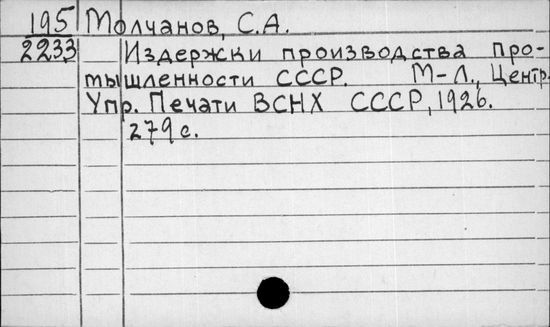 195 Молчанов, С.А.
2233 Издержки производства про-
мышленности СССР. М-Л., Центр.
Упр. Печати ВСНХ СССР, 1926.
279 с.